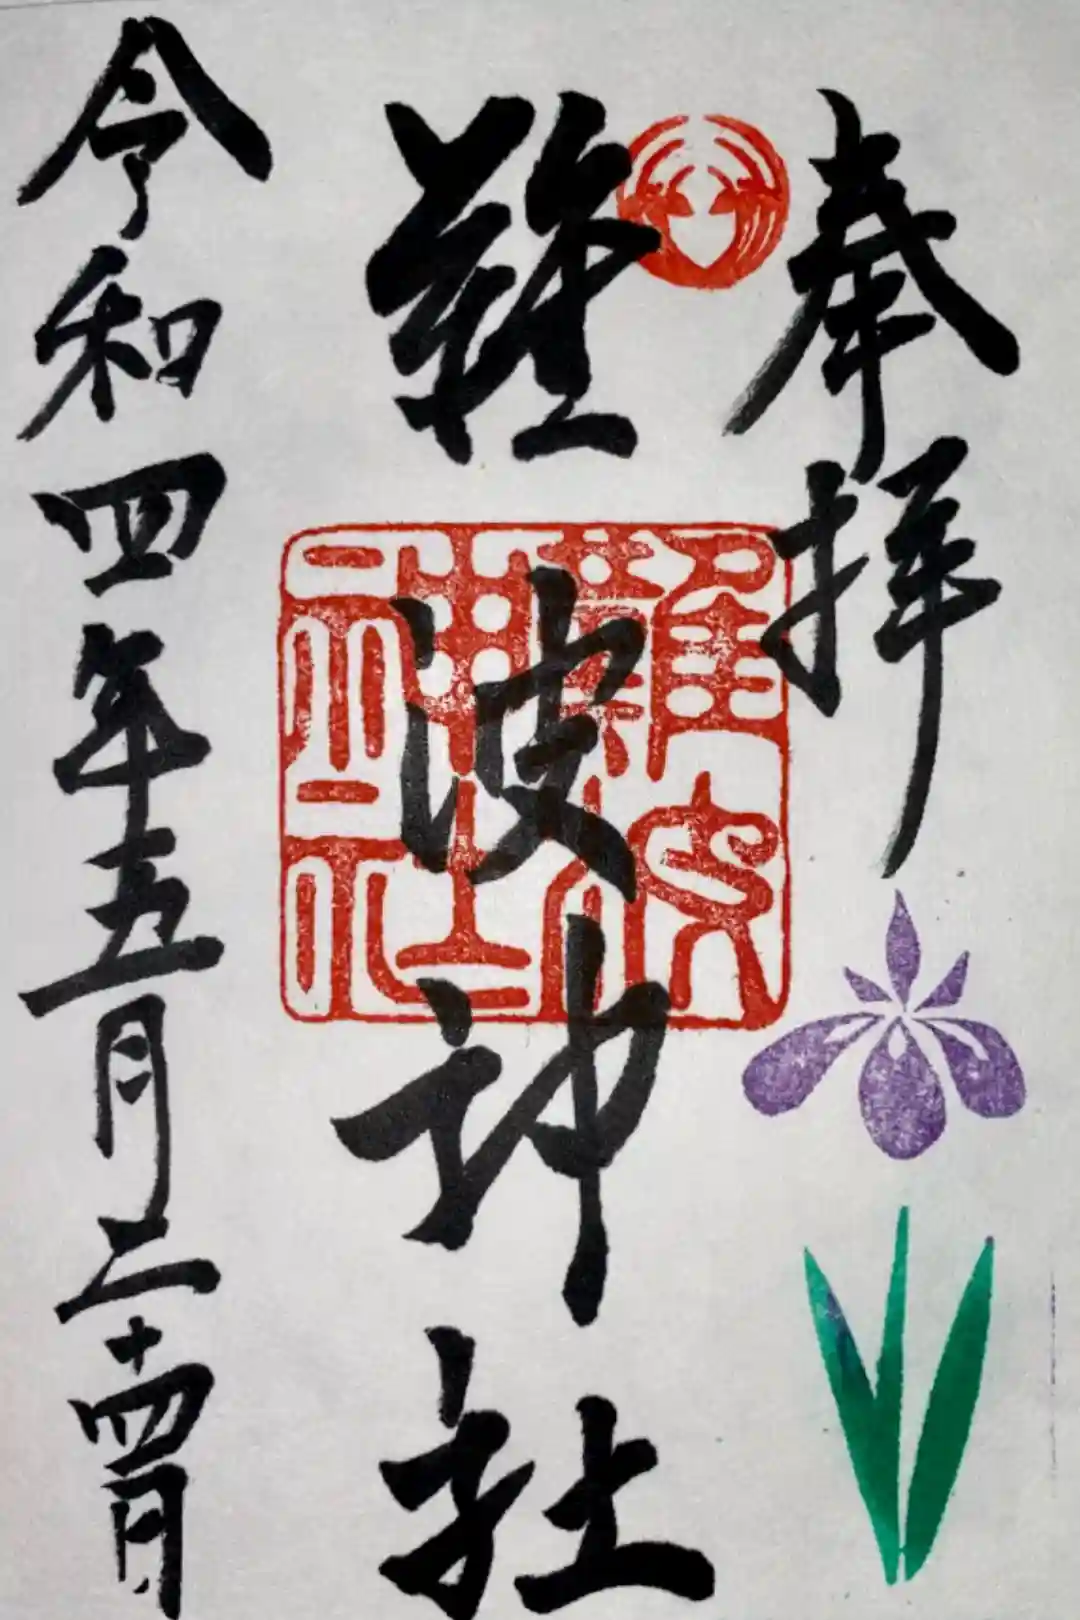 奉拝
難波神社
難波神社
令和四年五月二十四日